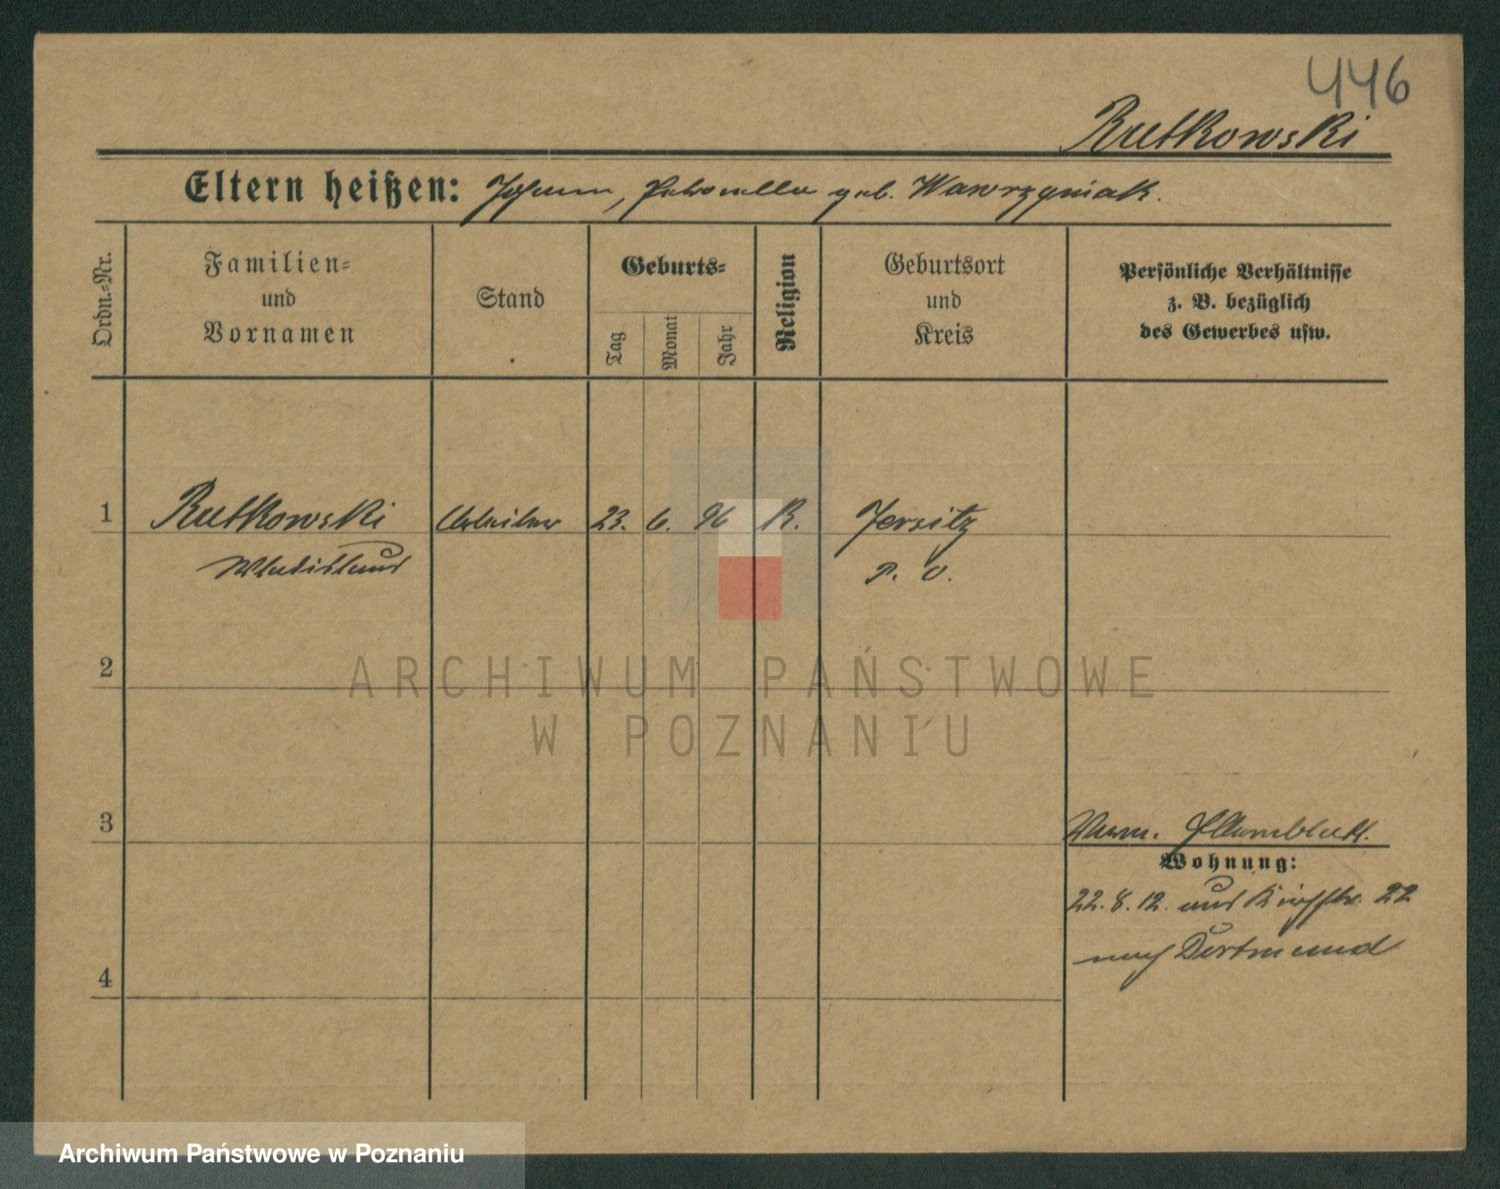 446
Rutkowski
Eltern heißen: Johann, Petronella geb. Wawrzyniak.
Ordn.-Nr.
Familien-
und
Vornamen
Stand
Geburts-
Tag
Monat
Jahr
Religion
Geburtsort
und
Kreis
Persönliche Verhältnisse
z. B. bezüglich
des Gewerbes usw.
1 Rutkowski Arbeiter 23. 6. 96 K. Jersitz
Wladislaus P. O.
2
ARCHIWUM PAŃSTWOWE
W POZNANIU
3
Wohnung:
22. 8. 12. aus 22
nach Dortmund
4
Archiwum Państwowe w Poznaniu